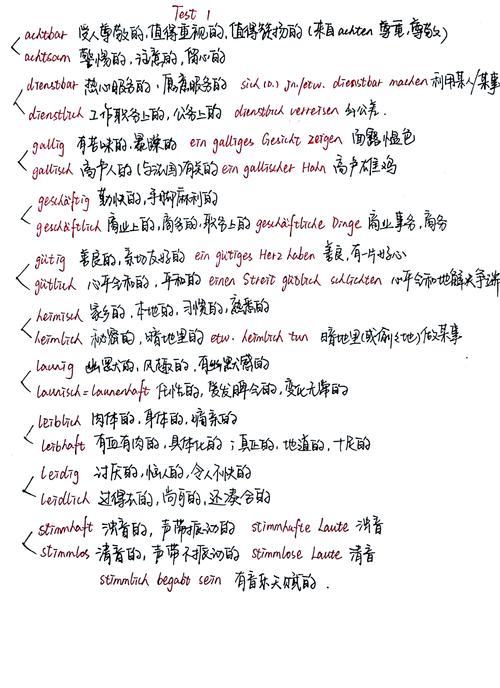 Test 1
achtbar 受人尊敬的,值得重视的,值得赞扬的(来自achten 尊重,尊敬)
achtsam 警惕的,注意的,留心的
dienstbar 热心服务的,愿意服务的 sich(D.) jn./etw. dienstbar machen 利用某人/某事
dienstlich 工作职务上的,公务上的 dienstlich verreisen 出公差.
gallig 有苦味的,暴躁的 ein galliges Gesicht zeigen 面露愠色
gallisch 高卢人的(与法国)有关的 ein gallischer Hahn 高卢雄鸡
geschäftig 勤快的,手脚麻利的
geschäftlich 商业上的,商务的,职务上的 geschäftliche Dinge 商业事务,商务
gütig 善良的,亲切友好的 ein gütiges Herz haben 善良,有一片好心
gütlich 心平气和的,平和的 einen Streit gütlich schlichten 心平气和地解决争端
heimisch 家乡的,本地的,习惯的,熟悉的
heimlich 秘密的,暗地里的 etw. heimlich tun 暗地里(或偷偷地)做某事
launig 幽默的,风趣的,有幽默感的
launisch=launenhaft 任性的,爱发脾气的,变化无常的
leiblich 肉体的,身体的,嫡亲的
leibhaft 有血有肉的,具体化的;真正的,地道的,十足的
leidig 讨厌的,恼人的,令人不快的
leidlich 过得去的,尚可的,还凑合的
stimmhaft 浊音的,声带振动的 stimmhafte Laute 浊音
stimmlos 清音的,声带不振动的 stimmlose Laute 清音
stimmlich begabt sein 有音乐天赋的.